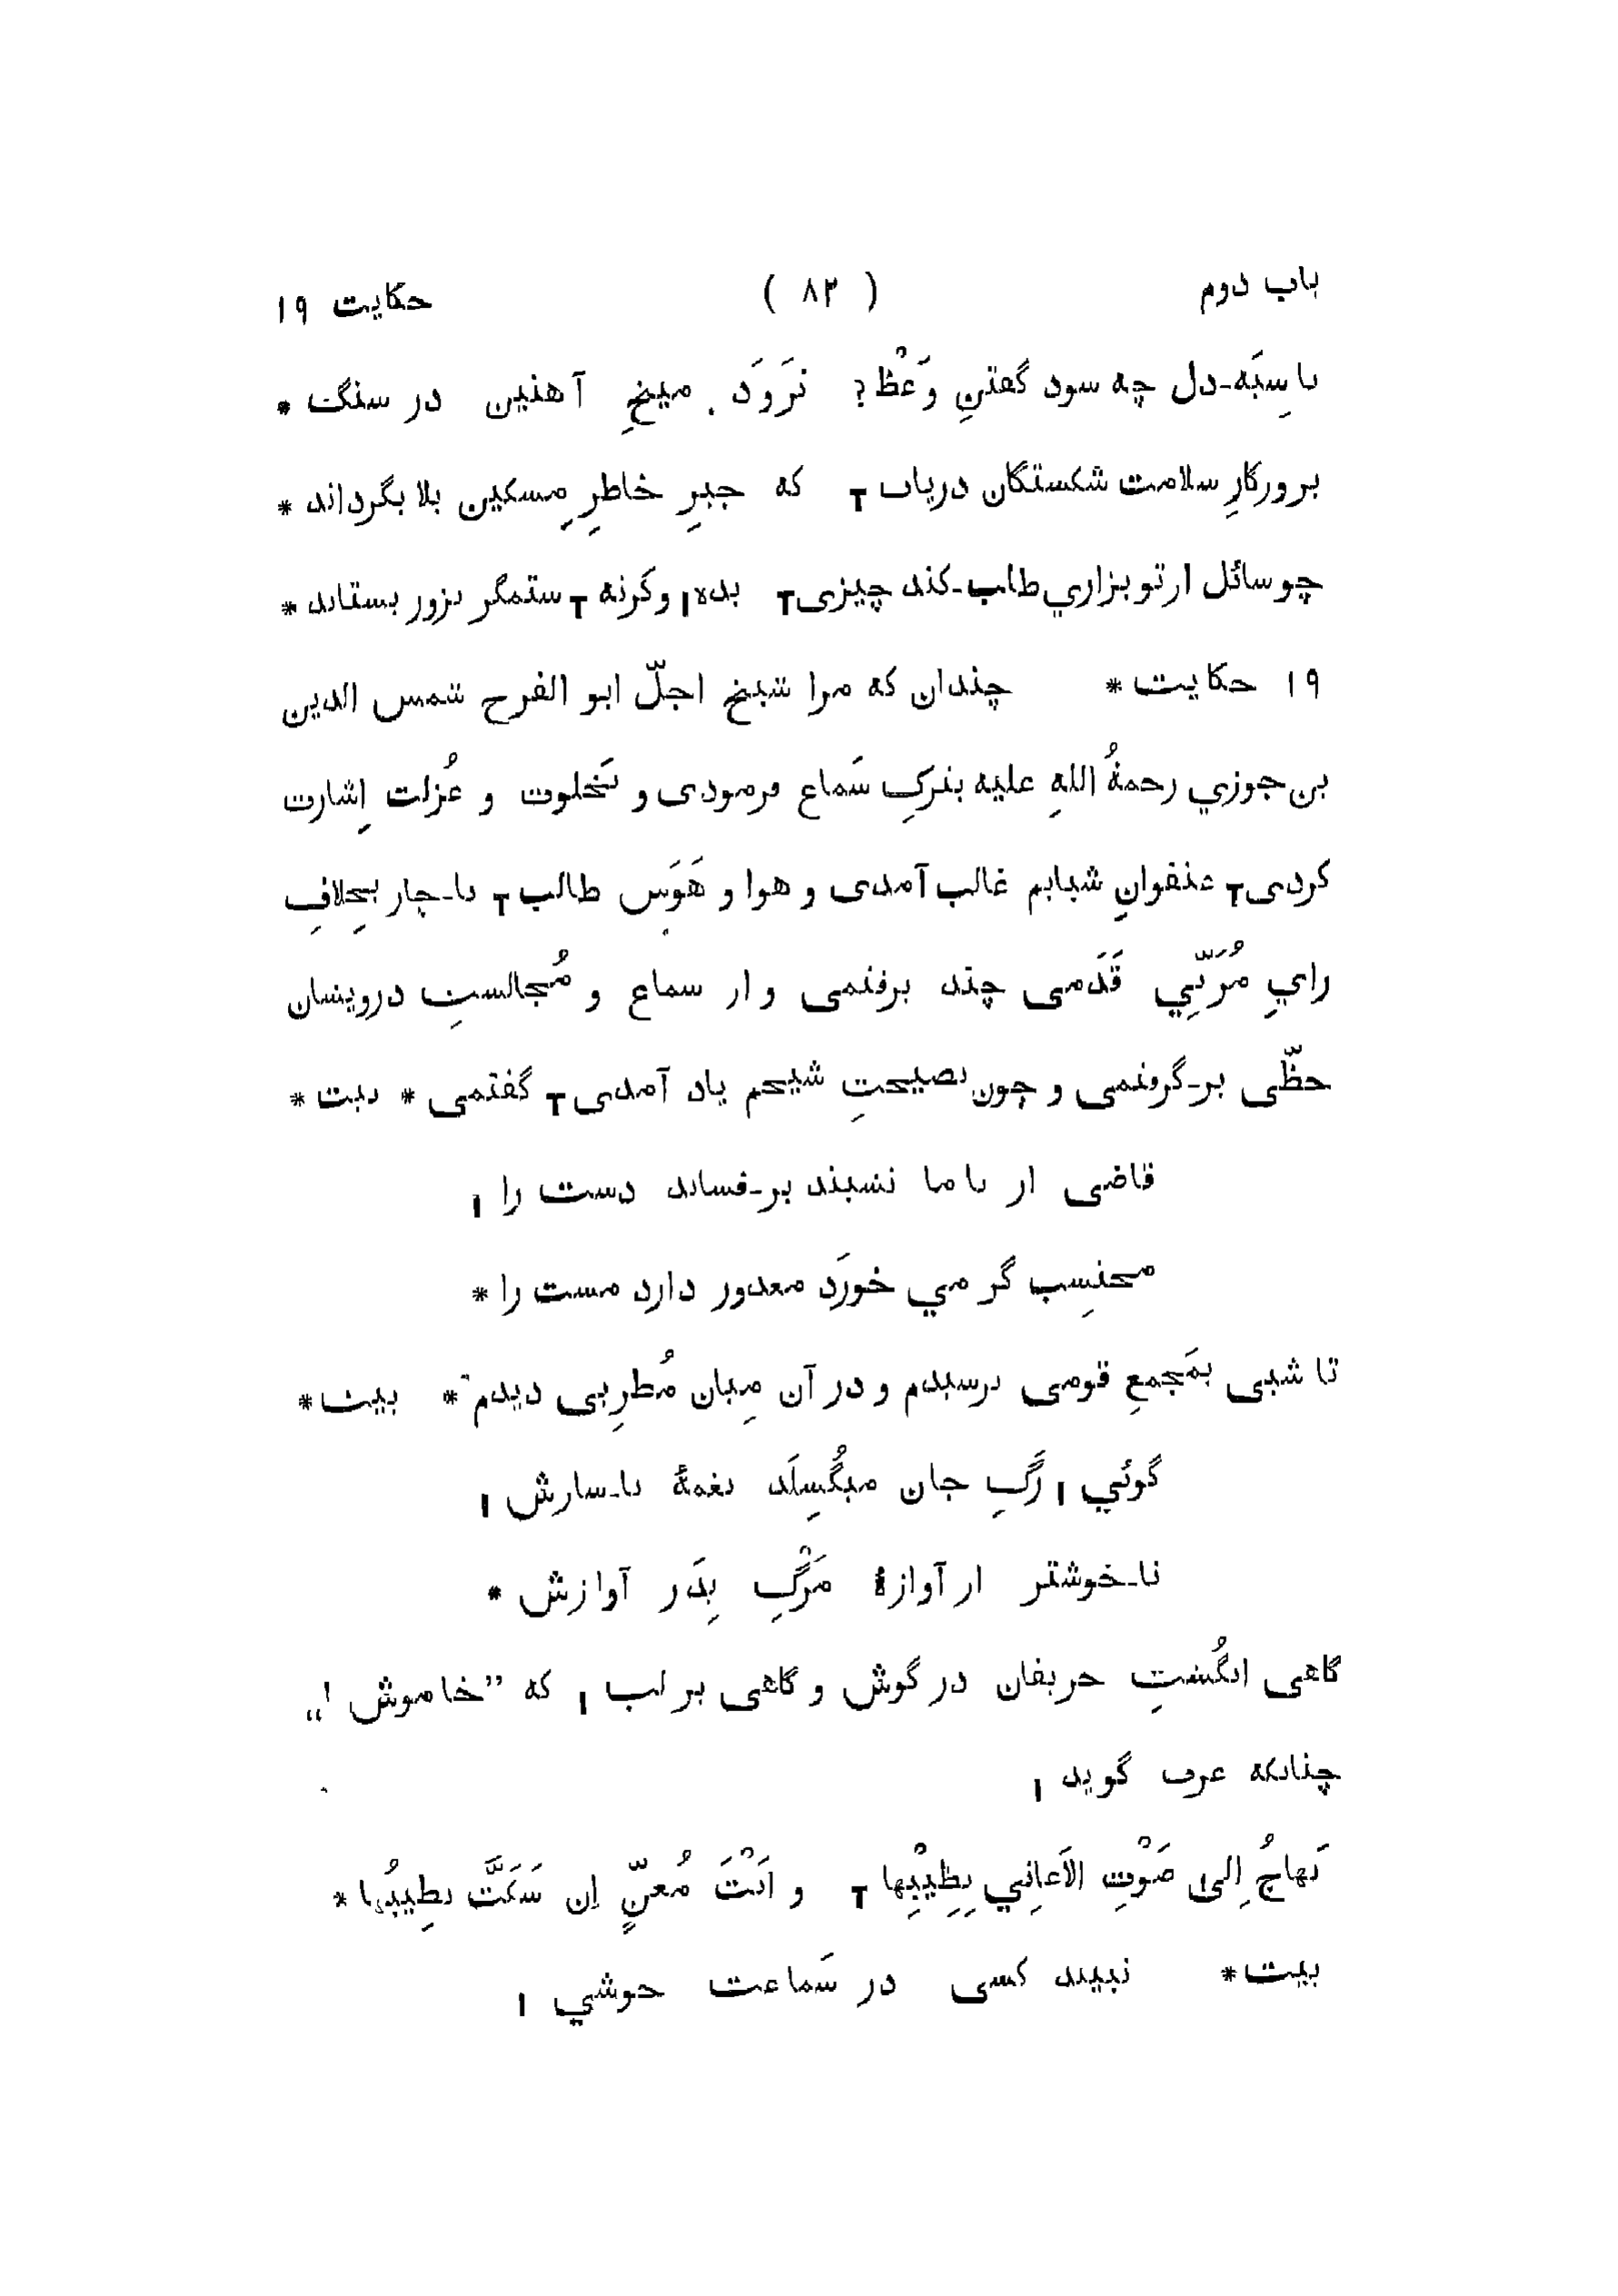 باب دوم ( ۸۲ ) حکایت ۱۹
با سِیَه-دل چه سود گفتنِ وَعْظ؟ نرَوَد میخِ آهنین در سنگ *
بروزگارِ سلامت شکستگان دریاب T که جبرِ خاطرِ مسکین بلا بگرداند *
چو سائل از تو بزاري طلب-کند چیزی T بده ا وگرنه T ستمگر بزور بستاند *
۱۹ حکایت * چندان که مرا شیخ اجلّ ابو الفرج شمس الدین
بن جوزي رحمةُ اللهِ علیه بترکِ سَماع فرمودی و بخَلوت و عُزلت اِشارت
کردی T عنفوانِ شبابم غالب آمدی و هوا و هَوَس طالب T نا-چار بخِلافِ
رايِ مُرَبّيِ قَدَمی چند برفتمی و از سماع و مُجالستِ درویشان
حظّی بر-گرفتمی و چون نصیحتِ شیخم یاد آمدی T گفتمی * بیت *
قاضی ار با ما نشیند بر-فشاند دست را ا
محتسِب گر مي خورَد معذور دارد مست را *
تا شبی بمَجمعِ قومی برسیدم و در آن مِیان مُطرِبی دیدم * بیت *
گوئي ا رَگِ جان میگُسِلَد نغمهٔ نا-سازش ا
نا-خوشتر از آوازهٔ مَرْگِ پِدَر آوازش *
گاهی انگُشتِ حریفان در گوش و گاهی بر لب ا که ”خاموش !“
چنانکه عرب گوید ا
نَهاجُ اِلی صَوْتِ الاَغانِي بِطِیْبِها T و اَنْتَ مُغنٍّ اِن سَکَتَّ نطِیبُها *
بیت * نبیند کسی در سَماعت خوشي ا